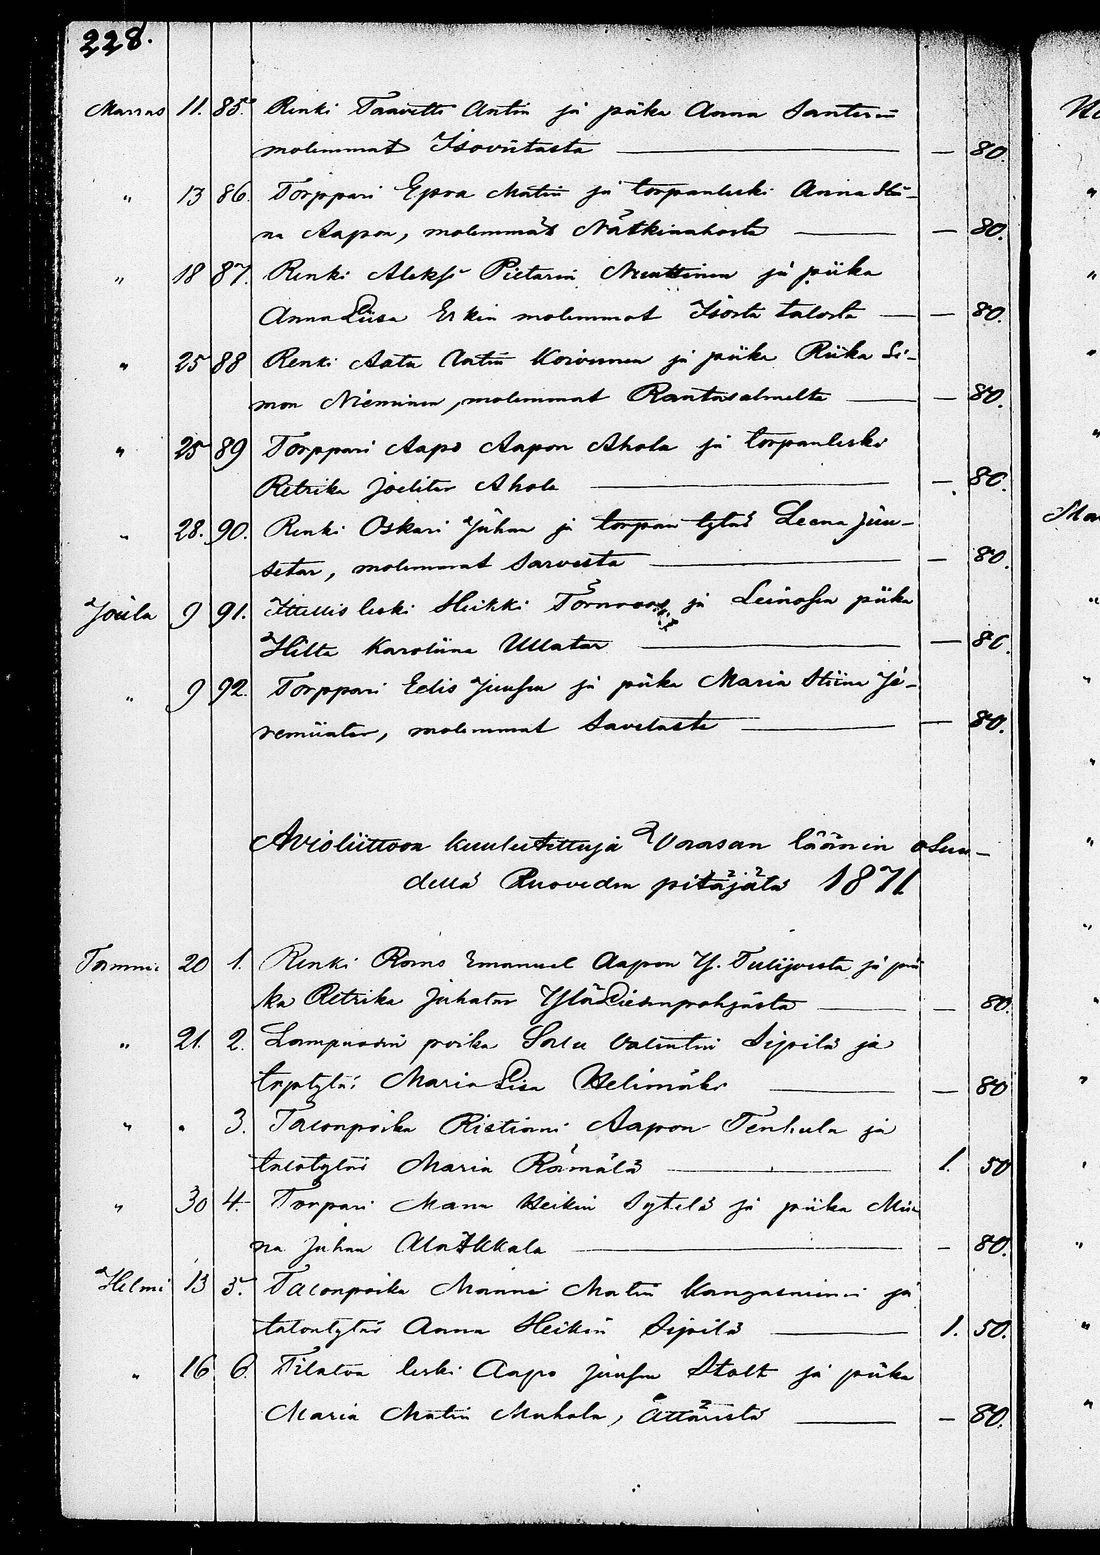 228.
Marras 11. 85. Renki Taavetti Antin ja piika Anna Santerin
molemmat Isoviitasta — 80.
" 13 86. Torppari Epra Matin ja torpanleski Anna Stii-
na Aapon, molemmat Nätkinahosta — 80.
" 18 87. Renki Aleksi Pietarin Nuuttinen ja piika
Anna Liisa Erkin molemmat Isosta talosta — 80.
" 25 88 Renki Aatu Antin Koivunen ja piika Riika Si-
mon Nieminen, molemmat Rantasalmelta — 80.
" 25 89 Torppari Aapo Aapon Ahola ja torpanleski
Retrika Joelitar Ahola — 80.
" 28. 90. Renki Oskari Juhan ja torpan tytär Leena Juu-
setar, molemmat Sarvesta — 80.
Joula 9 91. Itellis leski Heikki Törnroos ja Leinosen piika
Hilta Karoliina Ullatar — 80.
" 9 92. Torppari Eelis Juusen ja piika Maria Stiina Je-
remiiatar, molemmat Savelasta — 80.
Avioliittoon kuulutettuja Vaasan läänin osuu-
della Ruoveden pitäjätä 1871
Tammi 20 1. Renki Roms Emanuel Aapon Y. Tulijoesta ja pii-
ka Retrika Juhatar Ylä Liedenpohjasta — 80.
" 21. 2. Lampuodin poika Salu Valentin Sipilä ja
trptytär Maria Liisa Helinmäki — 80
" " 3. Talonpoika Ristiani Aapon Tenhula ja
talotytär Maria Rämälä 1. 50
" 30 4. Torpari Manu Heikin Sytelä ja piika Mii-
na Juhan Ala Akkala — 80.
Helmi 13 5. Talonpoika Manni Matin Kangasniemi ja
talontytär Anna Heikin Sipilä 1. 50.
" 16 6. Tilaton leski Aapo Juusen Stolt ja piika
Maria Matin Mahala, Ättäristä — 80.